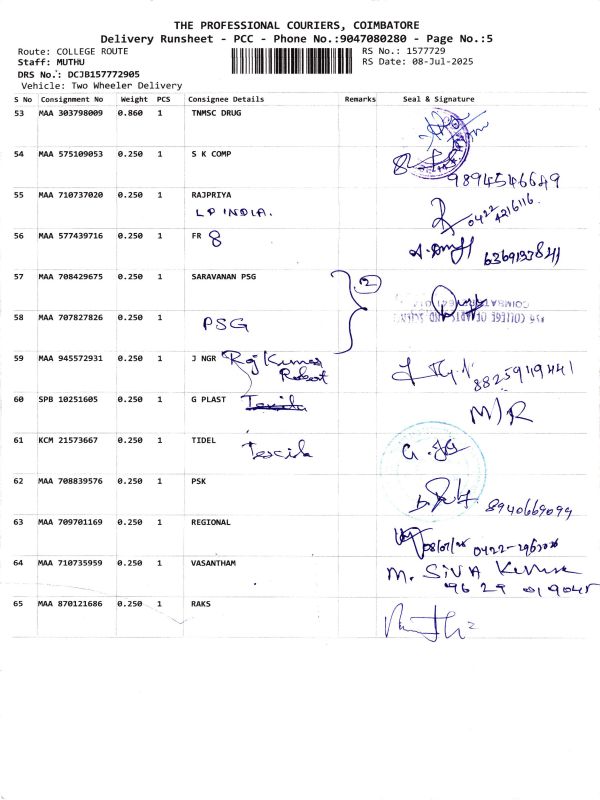 THE PROFESSIONAL COURIERS, COIMBATORE
Delivery Runsheet - PCC - Phone No.:9047080280 - Page No.:5
Route: COLLEGE ROUTE RS No.: 1577729
Staff: MUTHU RS Date: 08-Jul-2025
DRS No.: DCJB157772905
Vehicle: Two Wheeler Delivery
S No Consignment No Weight PCS Consignee Details Remarks Seal & Signature
53 MAA 303798009 0.860 1 TNMSC DRUG
54 MAA 575109053 0.250 1 S K COMP
9894546649
55 MAA 710737020 0.250 1 RAJPRIYA
LP INDIA. 0422 4216116
56 MAA 577439716 0.250 1 FR 8
6369193841
57 MAA 708429675 0.250 1 SARAVANAN PSG 2
58 MAA 707827826 0.250 1
PSG
59 MAA 945572931 0.250 1 J NGR Raj Kumar
Robot 8825949441
60 SPB 10251605 0.250 1 G PLAST M/R
61 KCM 21573667 0.250 1 TIDEL
62 MAA 708839576 0.250 1 PSK
8940669099
63 MAA 709701169 0.250 1 REGIONAL
64 MAA 710735959 0.250 1 VASANTHAM M. SIVA Kumar
96 29 019045
65 MAA 870121686 0.250 1 RAKS